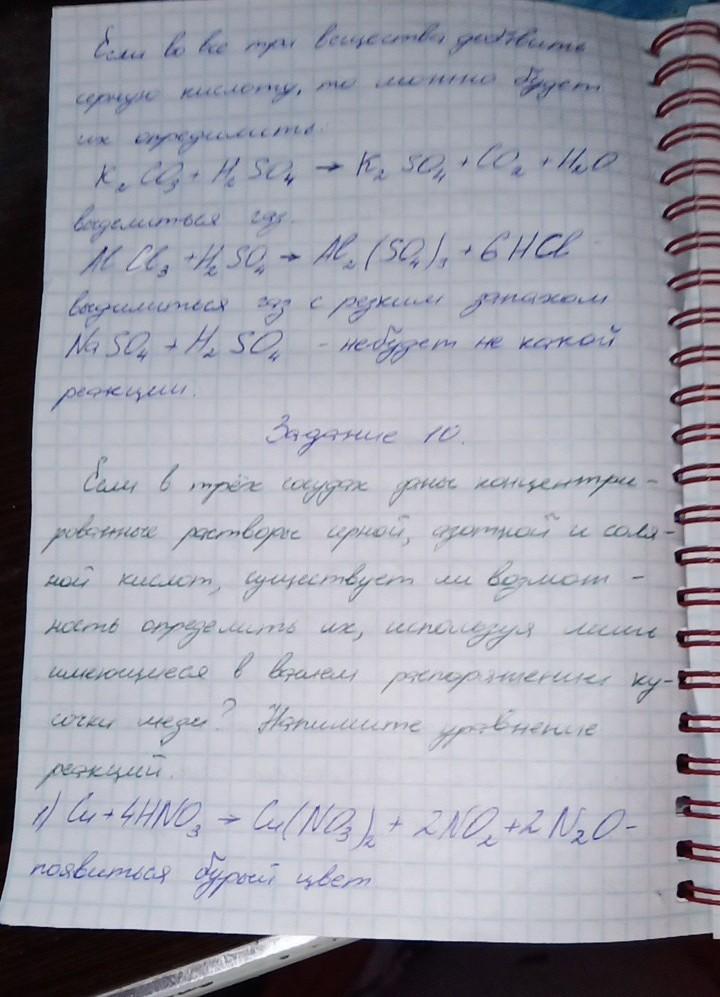 Если во все три вещества добавить
серную кислоту, то можно будет
их определить.
K₂CO₃ + H₂SO₄ → K₂SO₄ + CO₂ + H₂O
выделиться газ.
AlCl₃ + H₂SO₄ → Al₂(SO₄)₃ + 6HCl
выделиться газ с резким запахом
NaSO₄ + H₂SO₄ - небудет не какой
реакции.
Задание 10.
Если в трёх сосудах даны концентри-
рованные растворы серной, азотной и соля-
ной кислот, существует ли возмож-
ность определить их, используя лишь
имеющиеся в вашем распоряжении ку-
сочки меди? Напишите уравнение
реакций.
1) Cu + 4HNO₃ → Cu(NO₃)₂ + 2NO₂ + 2N₂O -
появиться бурый цвет